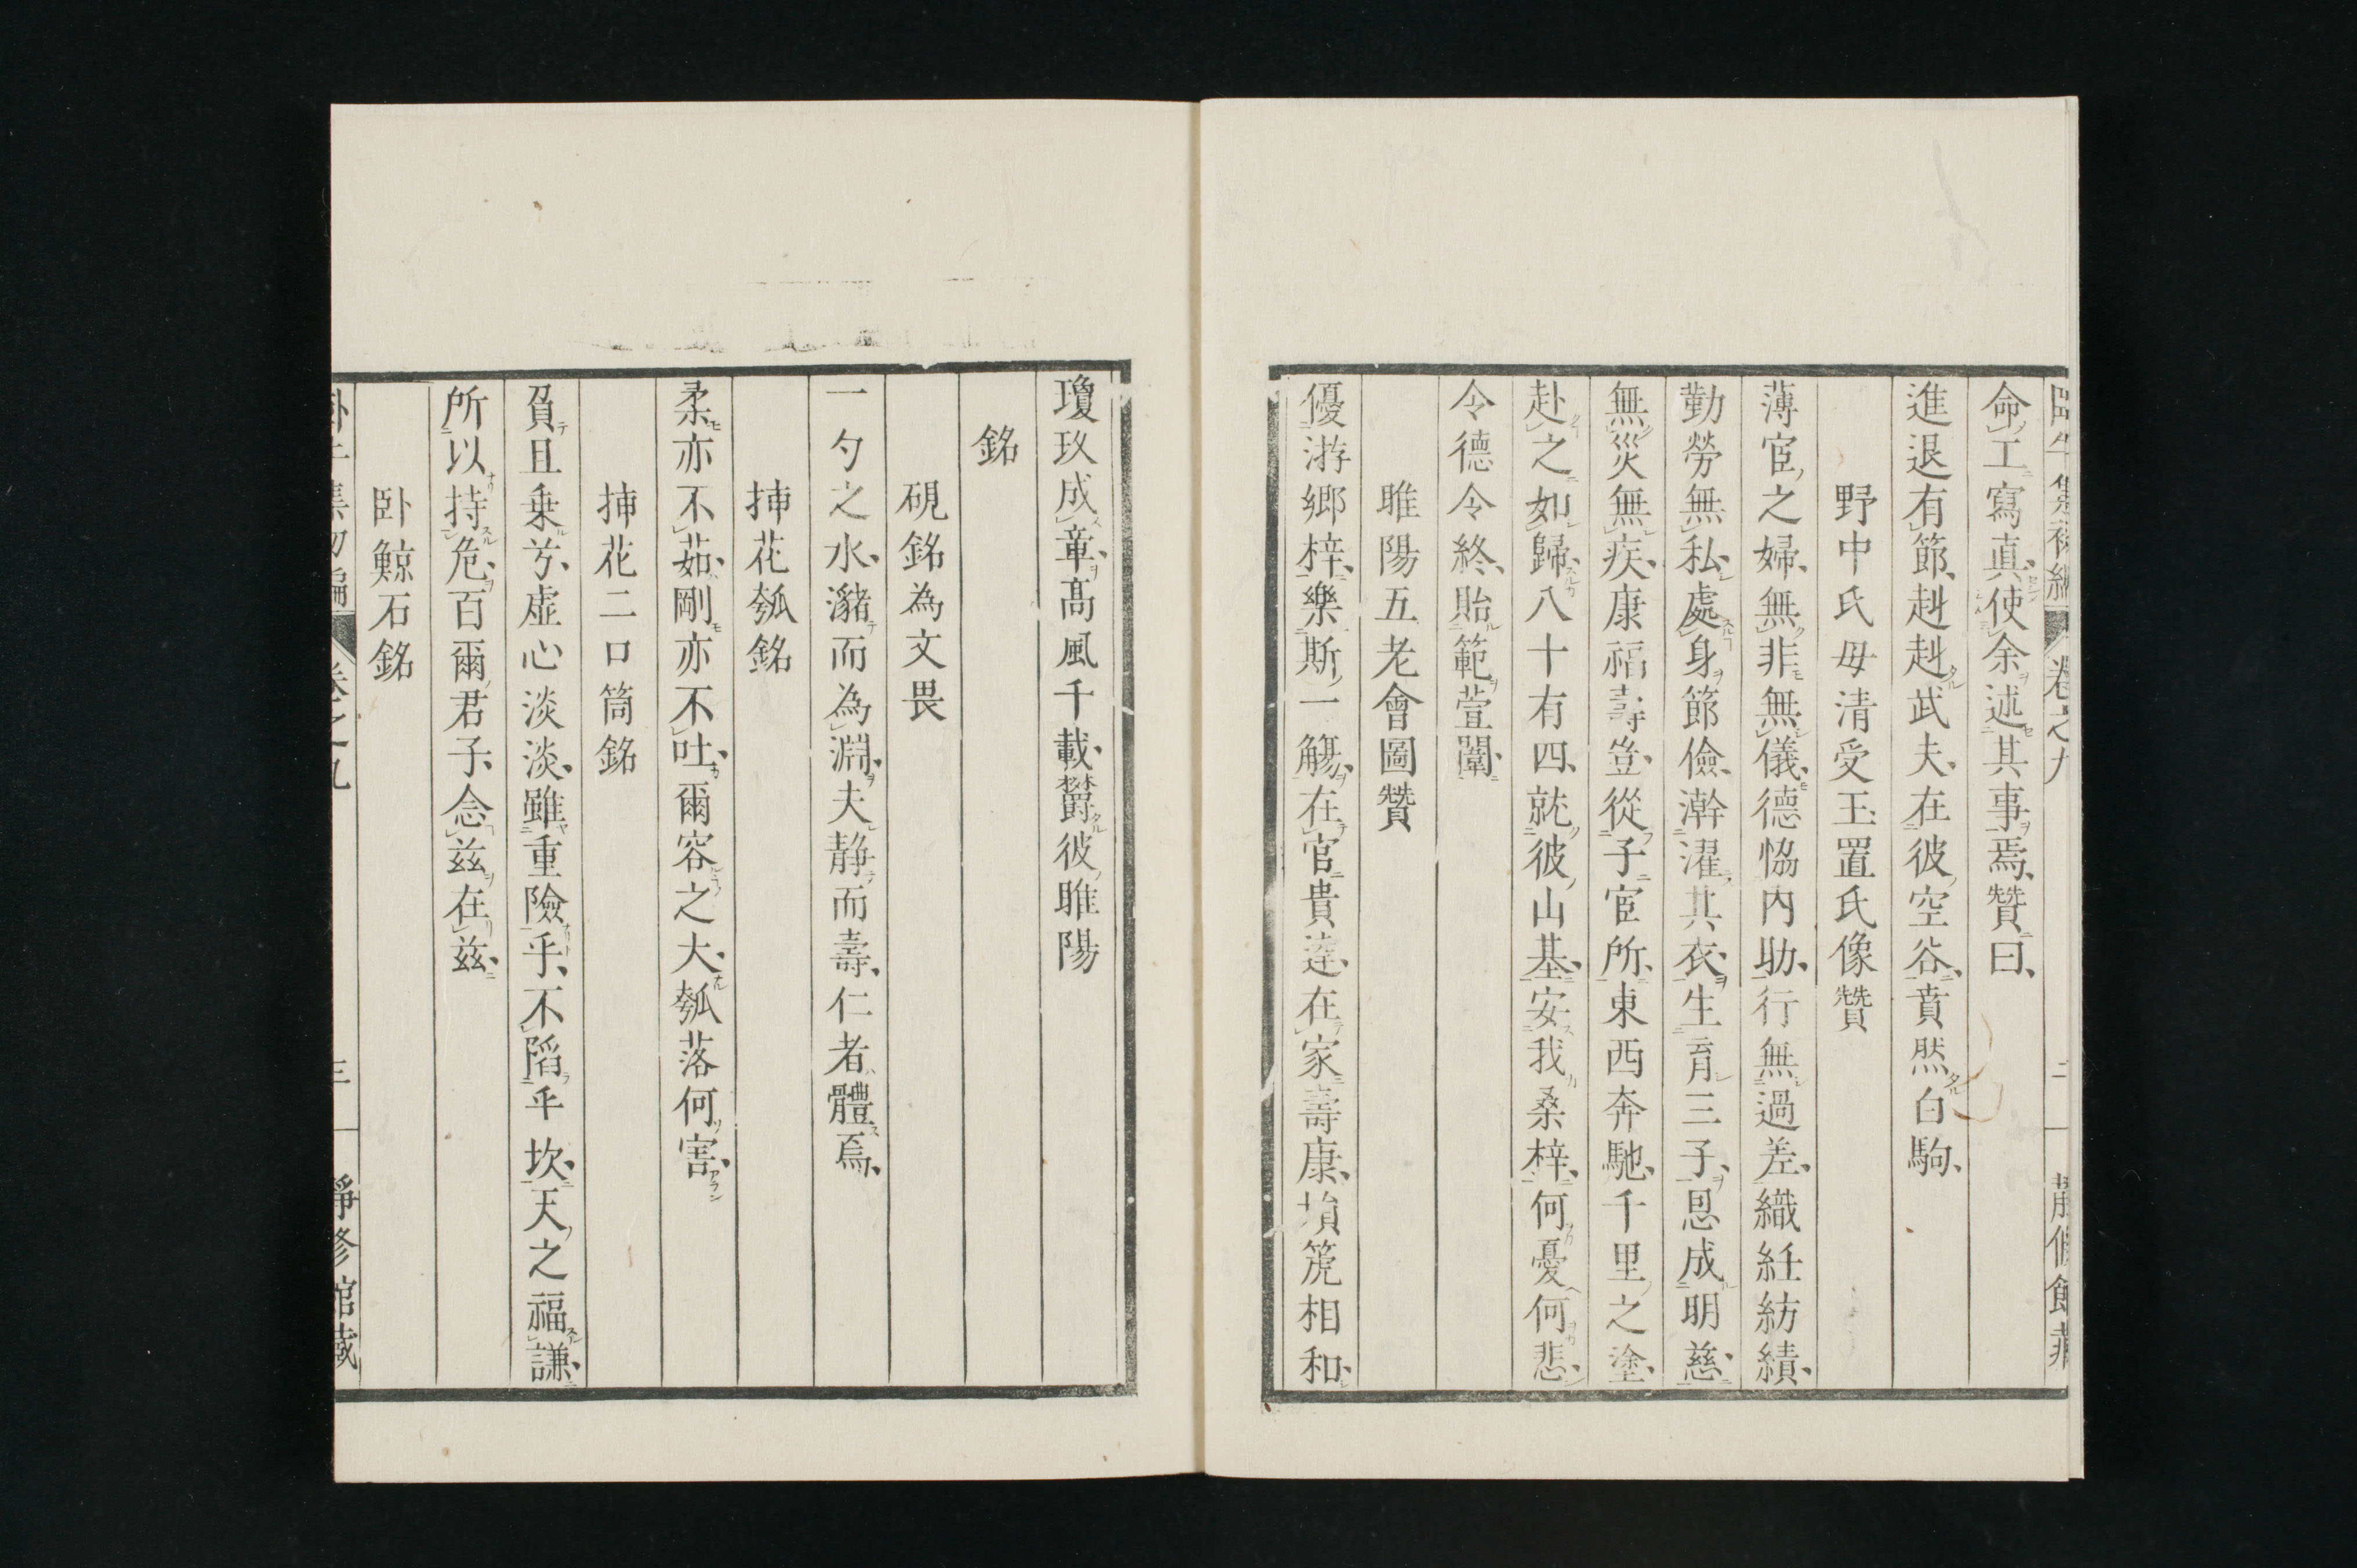 命工寫真、使余述其事焉、贊曰、
進退有節、赳赳武夫、在彼空谷、賁然白駒、
野中氏母清受玉置氏像贊
薄宦之婦、無非無儀、德恊內助、行無過差、織紝紡績、
勤勞無私、處身節儉、澣濯其衣、生育三子、恩成明慈、
無災無疾、康福壽豈、從子宦所、東西奔馳、千里之塗、
赴之如歸、八十有四、就彼山基、安我桑梓、何憂何悲、
令德令終、貽範萱闈、
睢陽五老會圖贊
優游鄉梓、樂斯一觴、在官貴達、在家壽康、塤箎相和、
瓊玖成章、高風千載、欝彼睢陽
銘
硯銘為文畏
一勺之水、瀦而為淵、夫静而壽、仁者體焉、
揷花瓠銘
柔亦不茹、剛亦不吐、爾容之大、瓠落何害、
揷花二口筒銘
負且乗兮、虛心淡淡、雖重險乎、不陷乎坎、天之福謙、
所以持危、百爾君子、念茲在茲、
卧鯨石銘
卷之九
三
靜修館藏